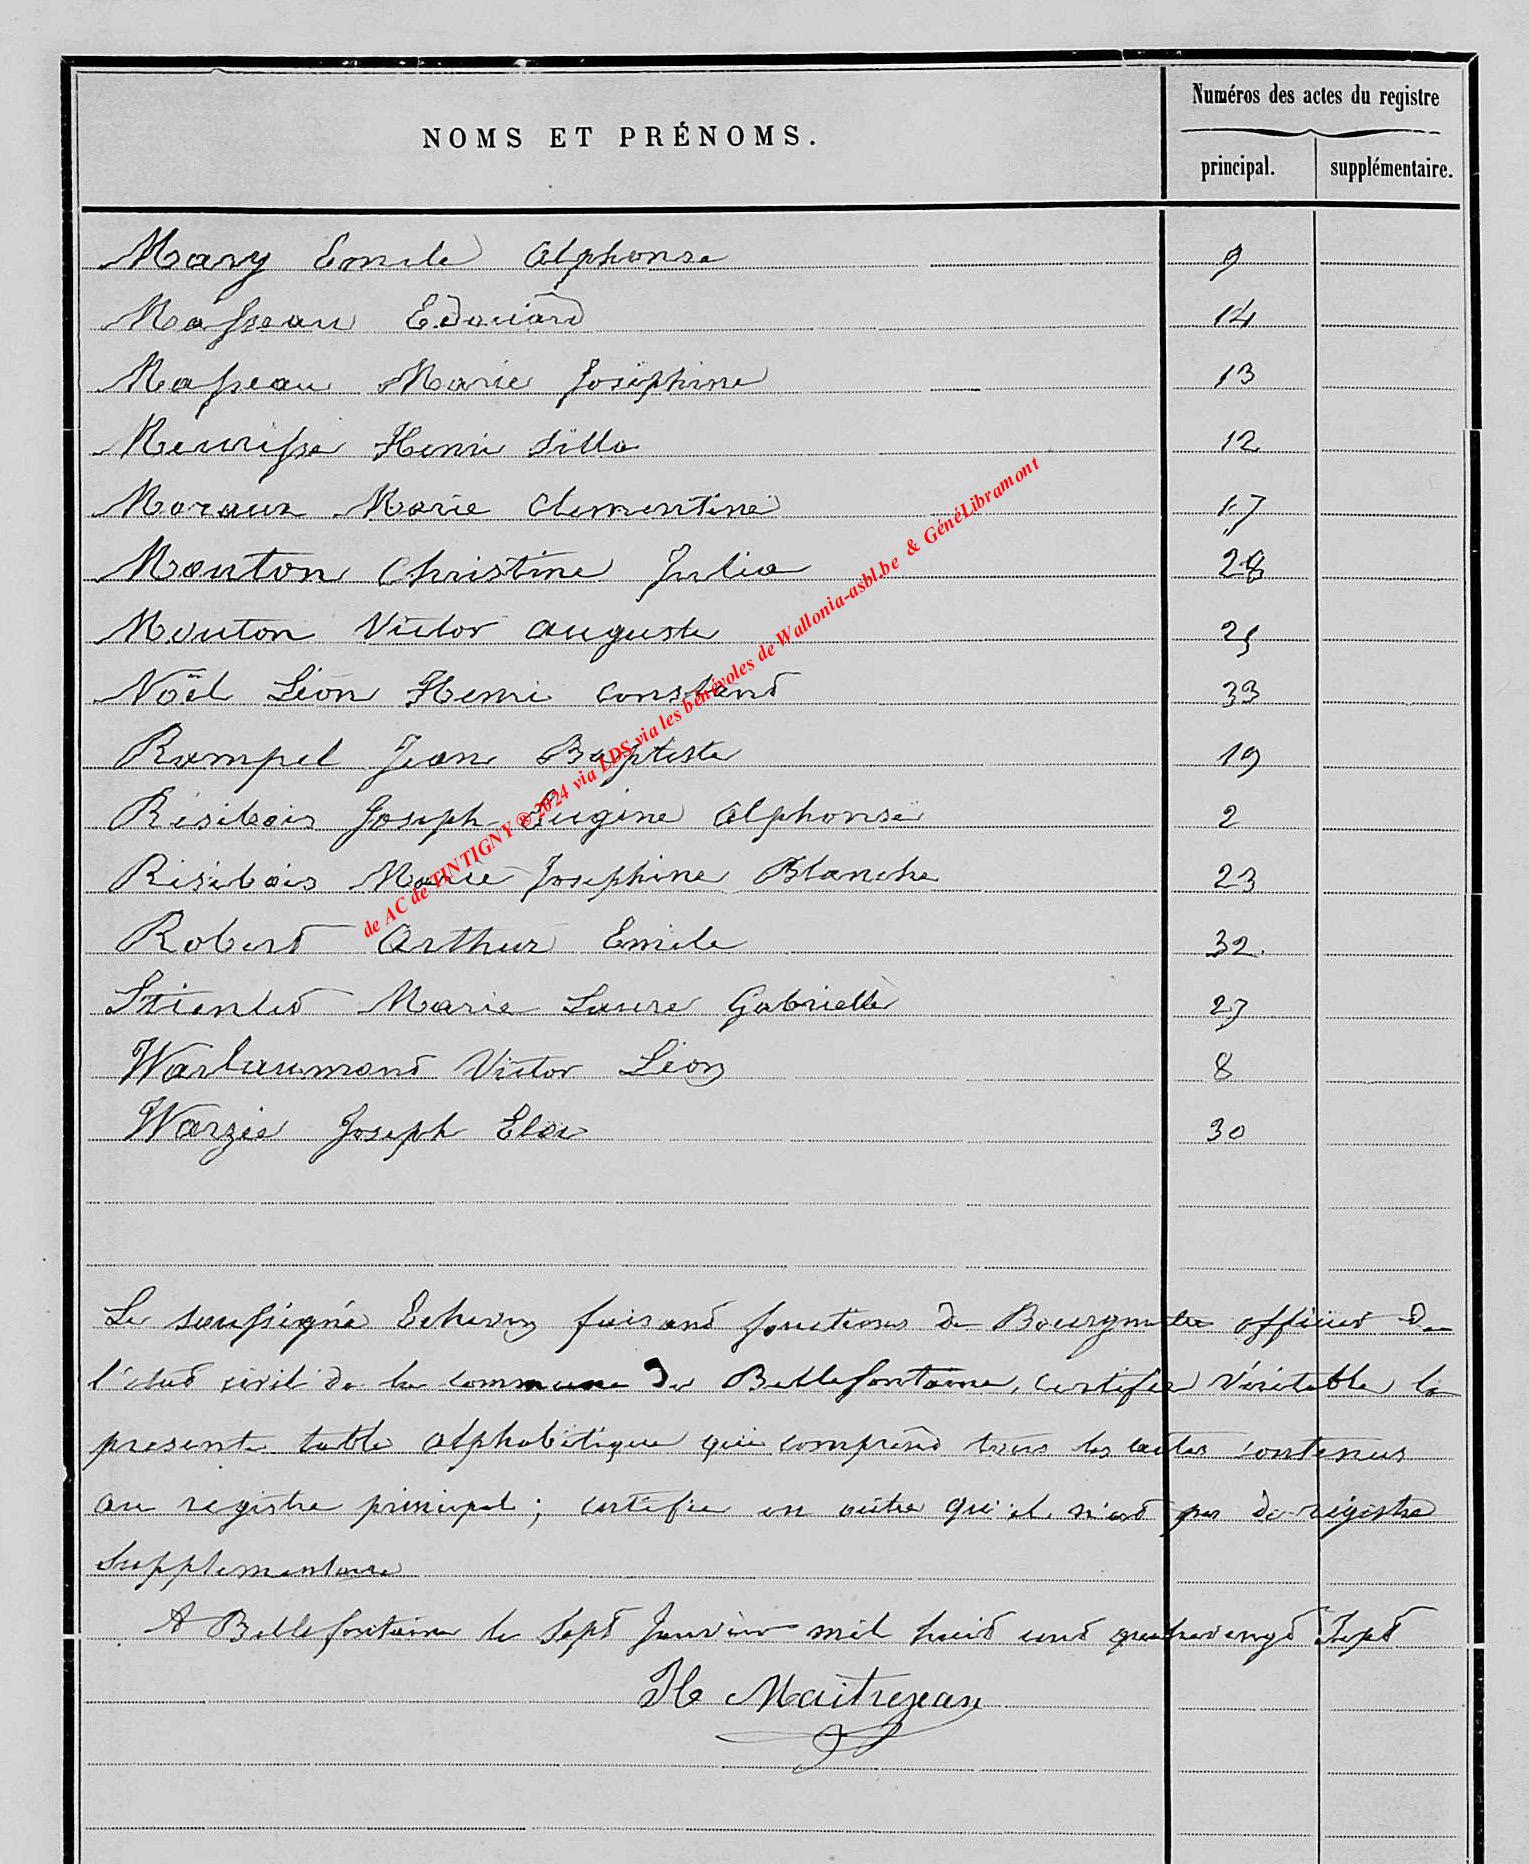 Numéros des actes du registre
NOMS ET PRÉNOMS.
principal. supplémentaire.
Mary Emile Alphonse 9
Masseau Edouard 14
Masseau Marie Joséphine 13
Meurisse Henri 12
Moraux Marie Clementine 17
Mouton Christine Julia 28
Mouton Victor Auguste 25
Noël Léon Henri Constant 33
Rampel Jean Baptiste 19
Résibois Joseph Eugène Alphonse 2
Résibois Marie Josephine Blanche 23
Robert Arthur Emile 32
Marie Laure Gabrielle 27
Warlaumont Victor Léon 8
Warzée Joseph Eloi 30
Le soussigné Echevin faisant fonctions de Bourgmestre officier de
l'état civil de la commune de Bellefontaine, certifie véritable la
présente table alphabétique qui comprend tous les actes contenus
au registre principal; certifie en outre qu'il n'est pas de registre
supplémentaire
A Bellefontaine le sept Janvier mil huit cent quatrevingt sept
H Maitrejean
de AC de TINTIGNY ® 2024 via LDS via les bénévoles de Wallonia-asbl.be & GénéLibramont